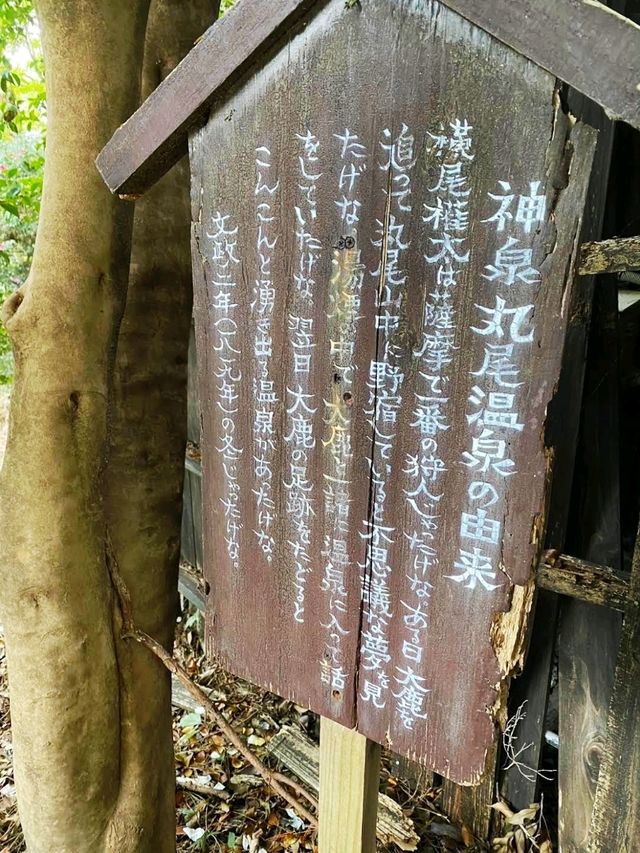 神泉丸尾温泉の由来
横尾権太は薩摩で一番の狩人じゃったげな。ある日大鹿を
追って丸尾山中に野宿していると不思議な夢を見
たげな。湯煙の中で大鹿と一諸に温泉に入って話
をしていたげな。翌日大鹿の足跡をたどると
こんこんと湧き出る温泉があったげな。
文政二年(一八一九年)の冬じゃったげな。